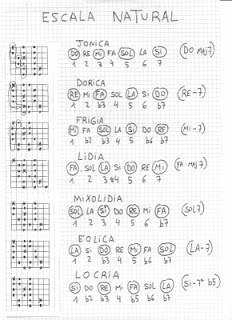 ESCALA NATURAL
JONICA
DO RE MI FA SOL LA SI (DO MAJ7)
1 2 3 4 5 6 7
DORICA
RE MI FA SOL LA SI DO (RE-7)
1 2 b3 4 5 6 b7
FRIGIA
MI FA SOL LA SI DO RE (MI-7)
1 b2 b3 4 5 b6 b7
LIDIA
FA SOL LA SI DO RE MI (FA MAJ7)
1 2 3 #4 5 6 7
MIXOLIDIA
SOL LA SI DO RE MI FA (SOL7)
1 2 3 4 5 6 b7
EOLICA
LA SI DO RE MI FA SOL (LA-7)
1 2 b3 4 5 b6 b7
LOCRIA
SI DO RE MI FA SOL LA (SI-7 b5)
1 b2 b3 4 b5 b6 b7